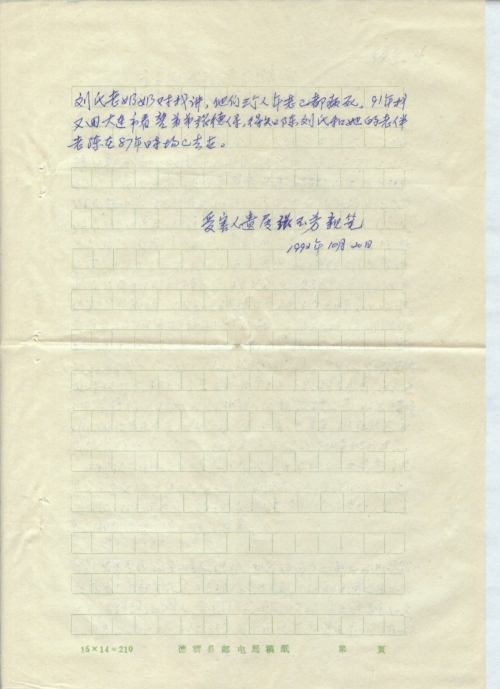 刘氏老奶奶对我讲，他们三个人年老已都病死。91年我
又回大连市看望弟弟张德保，得知陈刘氏和她的老伴
老陈在87年时均已去世。
受害人遗属张玉芳亲笔
1992年10月20日
15×14=210
邮电局稿纸
第 页